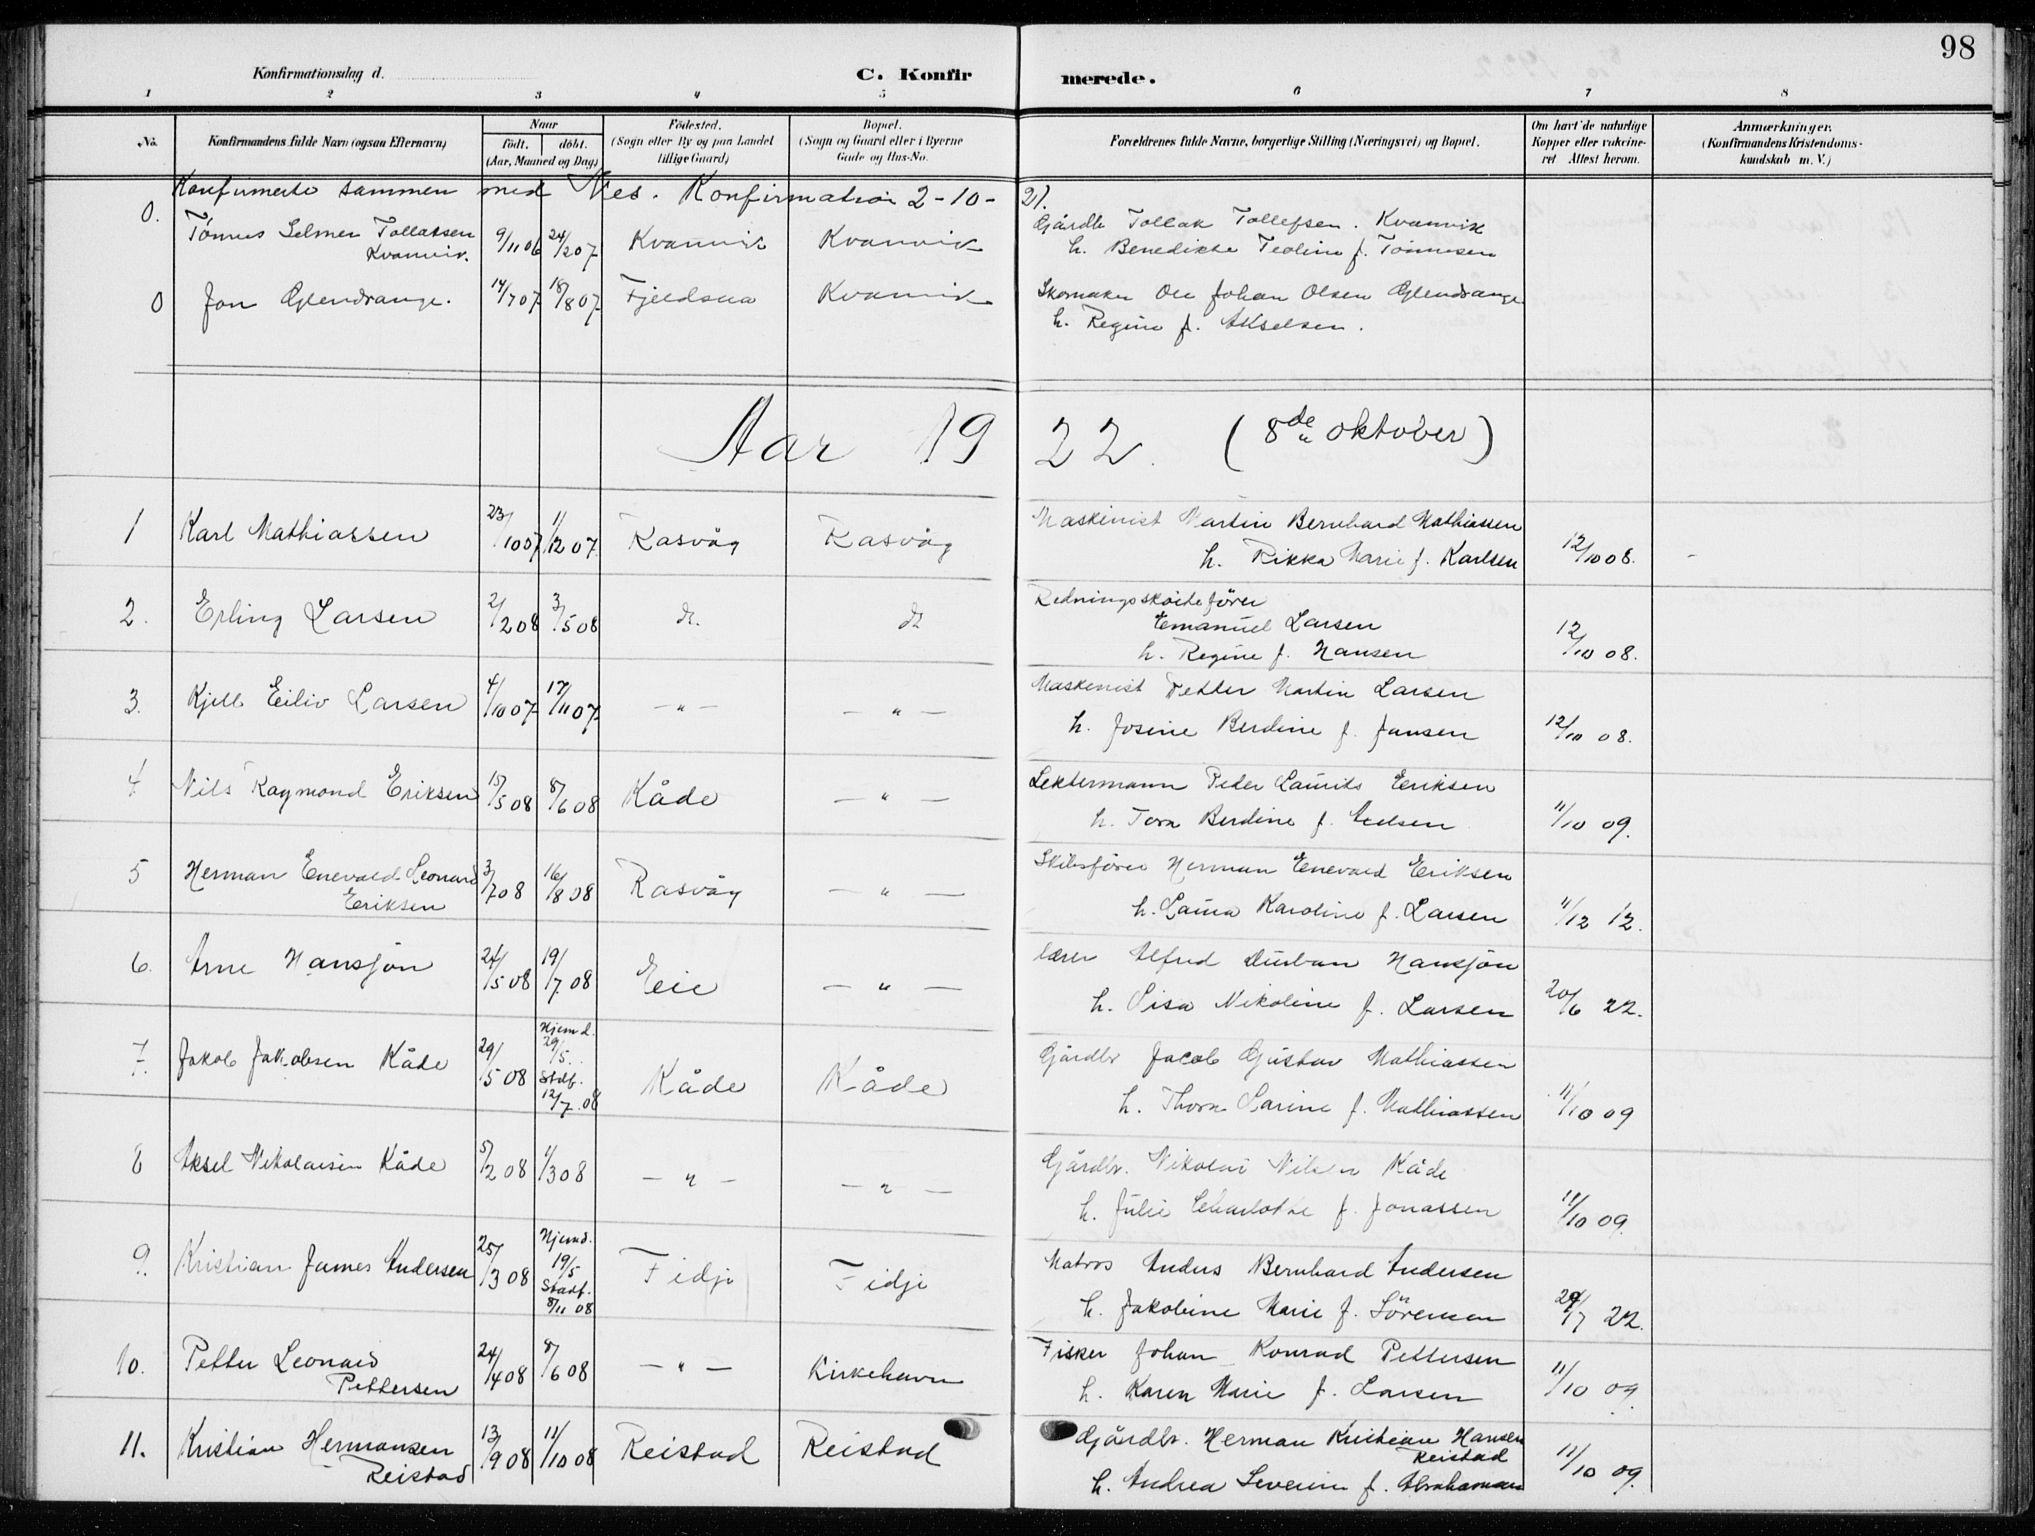 98
Konfirmationsdag d.
C. Konfirmerede.
1 2 3 4 5 6 7 8
No.
Konfirmandens fulde Navn (ogsaa Efternavn)
Naar
født. døbt.
(Aar, Maaned og Dag)
Fødested.
(Sogn eller By og paa Landet
tillige Gaard)
Bopæl.
(Sogn og Gaard eller i Byerne
Gade og Hus-No.
Forældrenes fulde Navne, borgerlige Stilling (Næringsvei) og Bopæl.
Om havt de naturlige
Kopper eller vakcine-
ret Attest herom.
Anmærkninger.
(Konfirmandens Kristendoms-
kundskab m. V.)
Konfirmerte sammen med Nes. Konfirmation 2-10-21.
0. Tønnes Selmer Tollaksen 9/11 06 24/2 07 Kvanvik Kvanvik Gårdbr Tollak Tollefsen. Kvanvik
Kvanvik. h. Benedikte Teoline f. Tønnesen
0 Jon Glendrange. 14/7 07 18/8 07 Fjeldsaa Kvanvik Skomaker Ole Johan Olsen Glendrange
h. Regine f. Akselsen.
Aar 1922. (8de oktober)
1 Karl Mathiassen 23/10 07 1/12 07 Rasvåg Rasvåg Maskinist Martin Bernhard Mathiassen
h. Rikka Marie f. Karlsen 12/10 08. -
2. Erling Larsen 2/2 08 3/5 08 do. do Redningsskøitefører
Emanuel Larsen
h. Regine f. Hansen 12/10 08.
3. Kjell Eiliv Larsen 4/10 07 17/11 07 -"- -"- Maskinist Petter Martin Larsen
h. Josine Berdine f. Jansen 12/10 08.
4. Nils Raymond Eriksen 15/5 08 8/6 08 Kåde -"- Lektermann Peder Laurits Eriksen
h. Tora Berdine f. 11/10 09.
5 Herman Enevald Leonard 3/7 08 16/8 08 Rasvåg -"- Skibsfører Herman Enevald Eriksen
Eriksen h. Laura Karoline f. Larsen 11/12 12.
6. Arne Hansjon 24/5 08 19/7 08 Eie -"- lærer Alfred Durban Hansjon
h. Sisa Nikoline f. Larsen 20/6 22.
7. Jakob Jakobsen Kåde 29/5 08 Hjemd. 29/5. Stdf. 12/7 08 Kåde Kåde Gårdbr Jacob Gustav Mathiassen
h. Thora Sarine f. Mathiassen 11/10 09
8 Aksel Nikolaisen Kåde 5/2 08 1/3 08 -"- -"- Gårdbr. Nikolai Nilsen Kåde
h. Julie Charlotte f. Jonassen 11/10 09.
9. Kristian James Andersen 25/3 08 Hjemd. 19/5 Stadf. 8/11 08 Fidje Fidje Matros Anders Bernhard Andersen
h. Jakobine Marie f. Sörensen 7 22.
10. Petter Leonard 24/4 08 8/6 08 -"- Kirkehavn Fisker Johan Konrad Pettersen
Pettersen h. Karen Marie f. Larsen 11/10 09.
11. Kristian Hermansen 13/9 08 11/10 08 Reistad Reistad Gårdbr. Herman Kristian Hansen
Reistad Reistad
h. Andrea Severine f. Abrahamsen 11/10 09.